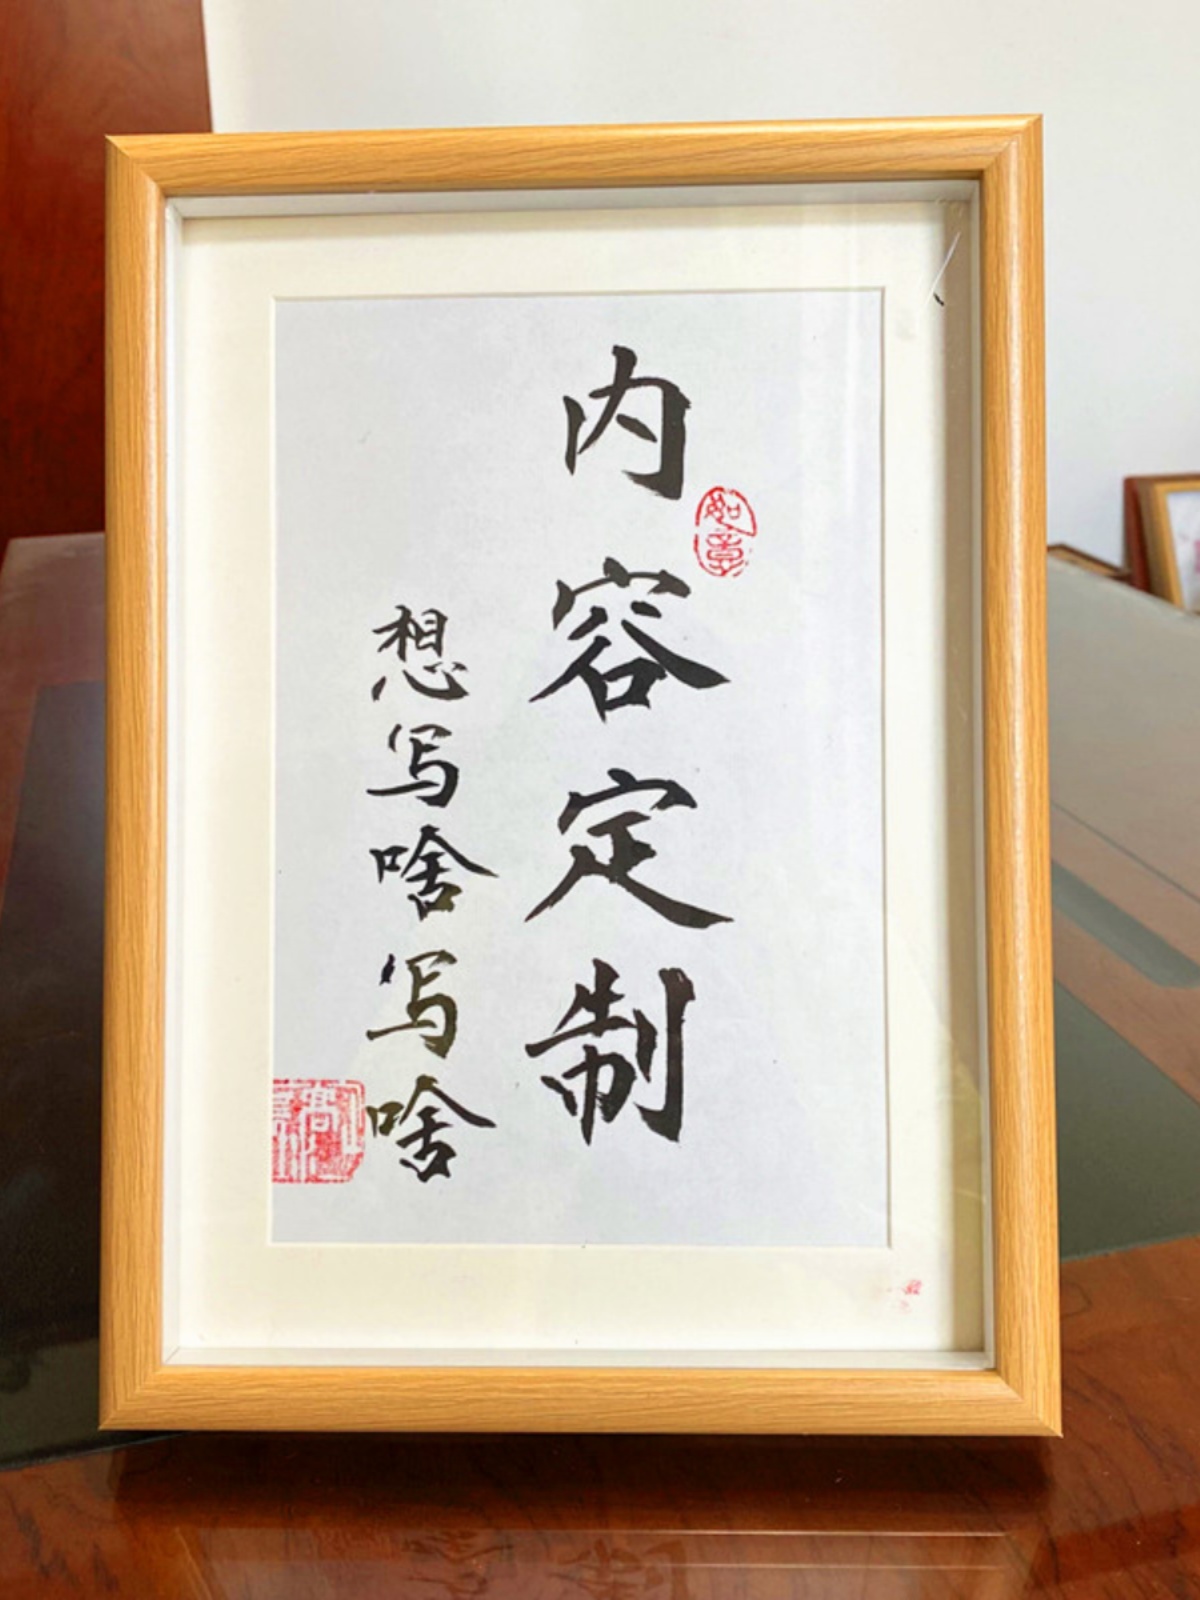 内容定制
如意
想写啥写啥